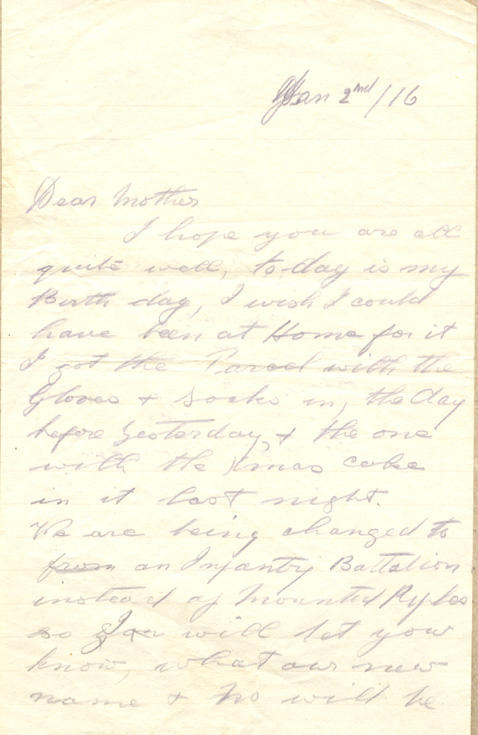 Jan 2nd/16
Dear Mother
I hope you are all
quite well, to-day is my
Birth day, I wish I could
have been at Home for it
I got the Parcel with the
Gloves + Socks in, the day
before yesterday, + the one
with the Xmas cake
in it last night.
We are being changed to
from an Infantry Battalion
instead of Mounted Ryfles
so I will let you
know, what our new
name + No will be